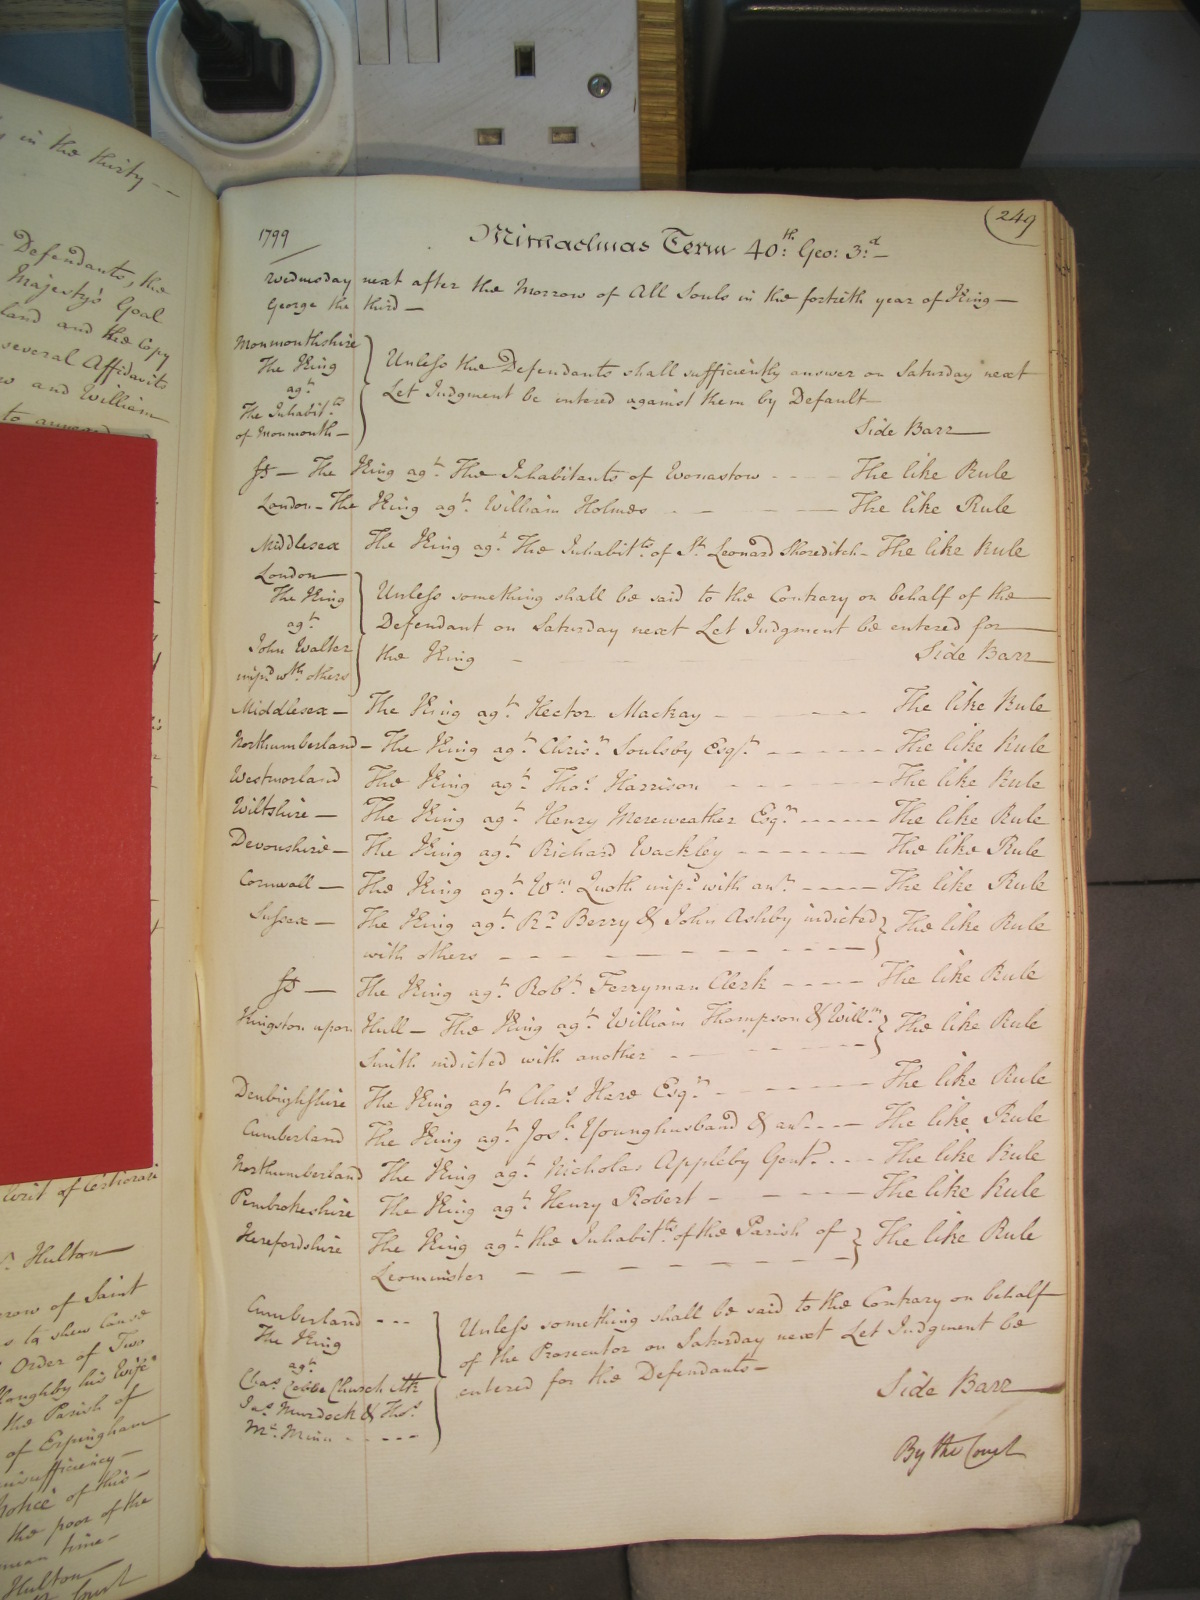 y in the thirty - -
Defendants, the
Majestys Goal
land and the Copy
several Affidavits
w and William
to
Writ of Certiorari
Hulton
row of Saint
s to shew cause
Order of Two
his Wife
the Parish of
of Erpingham
insufficiency
notice of this
the poor of the
mean time
Hulton
Court
249
1799
Michaelmas Term 40:th Geo: 3:d
Wednesday next after the Morrow of All Souls in the fortieth year of King
George the third
Monmouthshire
The King
agt
The Inhabitts
of Monmouth
Unless the Defendants shall sufficiently answer on Saturday next
Let Judgment be entered against them by Default
Side Barr
The King agt The Inhabitants of Wonastow - - - The like Rule
London - The King agt William Holmes - - - The like Rule
Middlesex The King agt The Inhabitts of St Leonard Shoreditch - The like Rule
London
The King
agt
John Walter
impd wth others
Unless something shall be said to the Contrary on behalf of the
Defendant on Saturday next Let Judgment be entered for
the King Side Barr
Middlesex - The King agt Hector Mackay - The like Rule
Northumberland - The King agt Chrisr Soulsby Esqr - The like Rule
Westmorland The King agt Thos Harrison - The like Rule
Wiltshire - The King agt Henry Mereweather Esqr - The like Rule
Devonshire - The King agt Richard Wackley - The like Rule
Cornwall - The King agt Wm impd with anr - The like Rule
Sussex - The King agt Rd Berry & John Ashby indicted The like Rule
with others
The King agt Robt Ferryman Clerk - The like Rule
Kingston upon Hull - The King agt William Thompson & Willm The like Rule
Smith indicted with another
Denbighshire The King agt Chas Hare Esqr - The like Rule
Cumberland The King agt Josh Younghusband & anr - The like Rule
Northumberland The King agt Nicholas Appleby Gent - The like Rule
Pembrokeshire The King agt Henry Robert - The like Rule
Herefordshire The King agt the Inhabitts of the Parish of The like Rule
Leominster
Cumberland - - -
The King
agt
Chas Church
Jas Murdock & Thos
Unless something shall be said to the Contrary on behalf
of the Prosecutor on Saturday next Let Judgment be
entered for the Defendants
Side Barr
By the Court